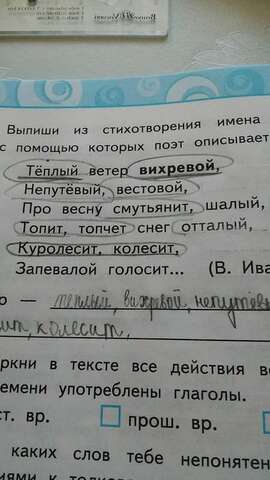 Выпиши из стихотворения имена
с помощью которых поэт описывает
Тёплый ветер вихревой,
Непутёвый, вестовой,
Про весну смутьянит, шалый,
Топит, топчет снег отталый,
Куролесит, колесит,
Запевалой голосит... (В. Ива
о — тёплый, вихревой, непутёвы
ит, колесит.
ркни в тексте все действия ве
емени употреблены глаголы.
ст. вр. прош. вр.
каких слов тебе непонятен
иями к толков